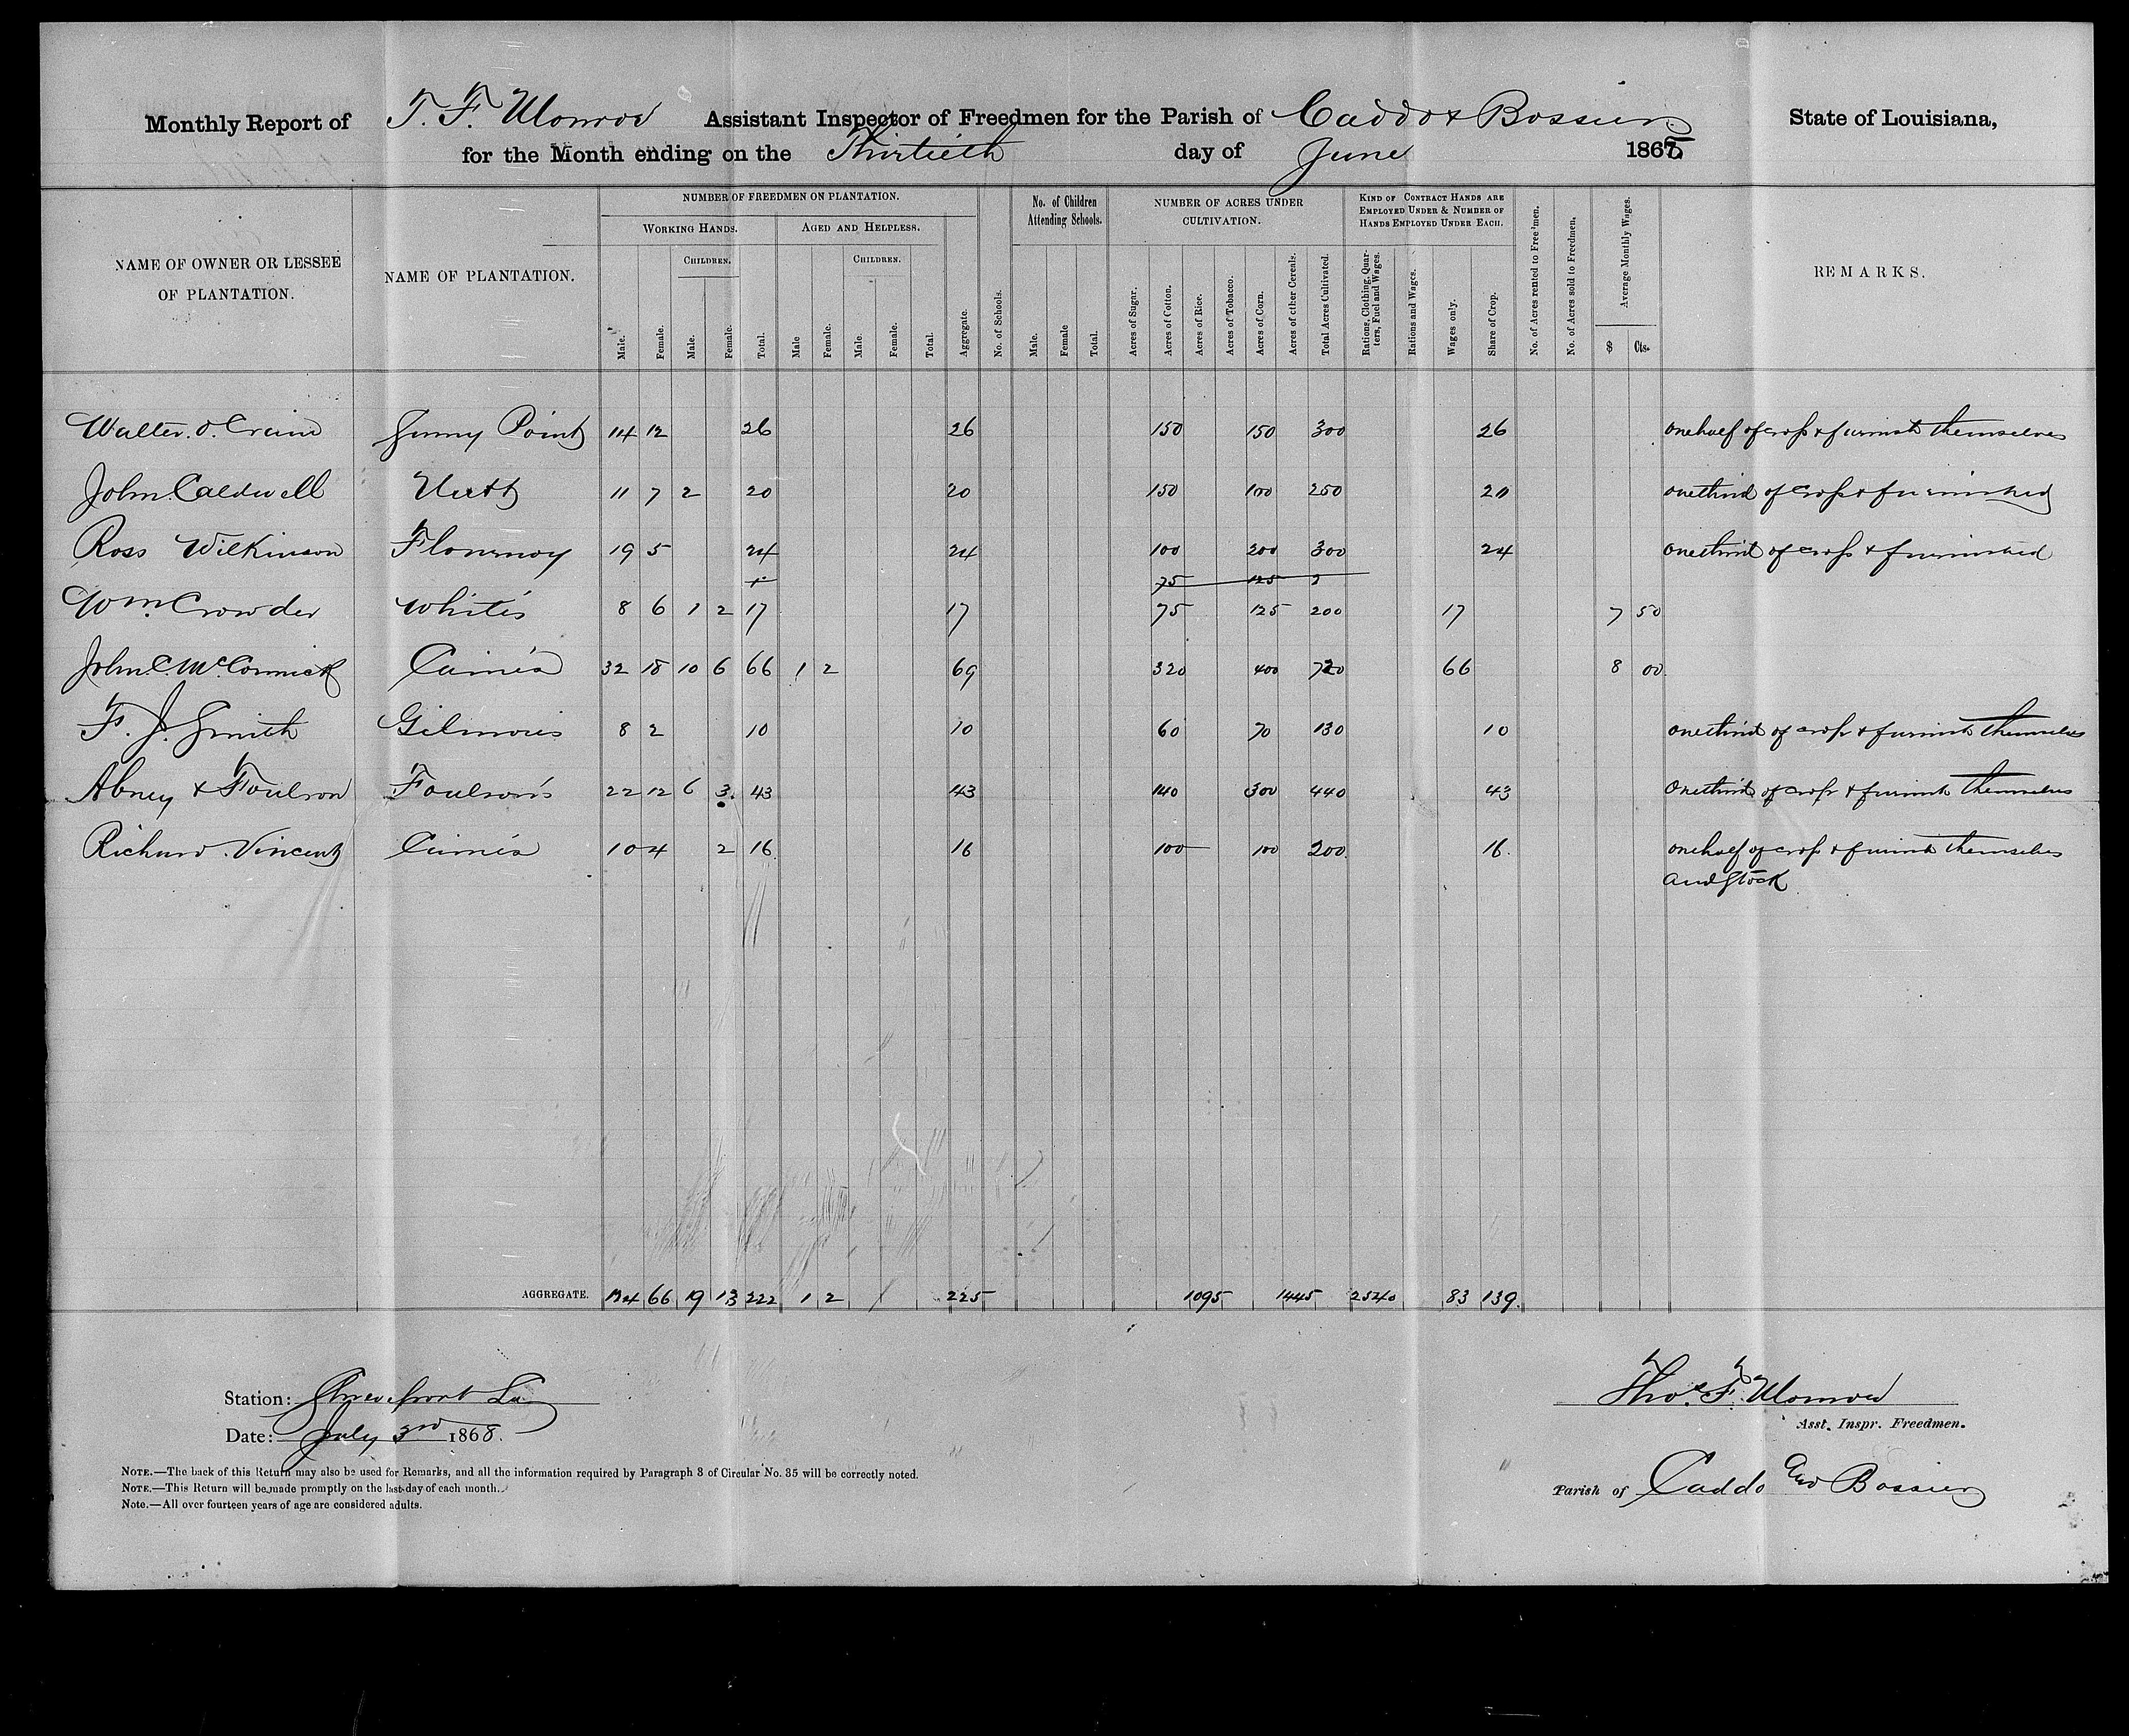 Monthly Report of T. F. Monroe Assistant Inspector of Freedmen for the Parish of Caddo & Bossier State of Louisiana,
for the Month ending on the Thirtieth day of June 1868
NAME OF OWNER OR LESSEE OF PLANTATION.
NAME OF PLANTATION.
NUMBER OF FREEDMEN ON PLANTATION.
WORKING HANDS. AGED AND HELPLESS.
CHILDREN. CHILDREN.
Male. Female. Male. Female. Total. Male Female. Male. Female. Total. Aggregate.
No. of Schools.
No. of Children Attending Schools.
Male. Female Total.
NUMBER OF ACRES UNDER CULTIVATION.
Acres of Sugar. Acres of Cotton. Acres of Rice. Acres of Tobacco. Acres of Corn. Acres of other Cereals. Total Acres Cultivated.
KIND OF CONTRACT HANDS ARE EMPLOYED UNDER & NUMBER OF HANDS EMPLOYED UNDER EACH.
Rations, Clothing, Quarters, Fuel and Wages. Rations and Wages. Wages only. Share of Crop.
No. of Acres rented to Freedmen. No. of Acres sold to Freedmen.
Average Monthly Wages.
$ Cts.
REMARKS.
Walter O. Point 14 12 26 26 150 150 300 26 one half of crop & furnish themselves
John Caldwell 11 7 2 20 20 150 100 250 20 one third of crop & furnished
Ross Wilkinson Flournoy 19 5 24 24 100 200 300 24 one third of crop & furnished
75 125 2
Wm Crowder White's 8 6 1 2 17 17 75 125 200 17 7 50
John C. McCormick 32 18 10 6 66 1 2 69 320 400 720 66 8 00
F. J. Smith Gilmore's 8 2 10 10 60 70 130 10 one third of crop & furnish themselves
Abney & Foulson Foulson's 22 12 6 3 43 43 140 300 440 43 One third of crop & furnish themselves
Richard Vincent 10 4 2 16 16 100 100 200 16 one half of crop & furnish themselves
and stock
AGGREGATE. 124 66 19 13 222 1 2 225 1095 1445 2540 83 139
Station: Shreveport La
Date: July 3rd 1868.
Thos. F. Monroe
Asst. Inspr. Freedmen.
Parish of Caddo and Bossier
NOTE.—The back of this Return may also be used for Remarks, and all the information required by Paragraph 3 of Circular No. 35 will be correctly noted.
NOTE.—This Return will be made promptly on the last day of each month.
Note.—All over fourteen years of age are considered adults.